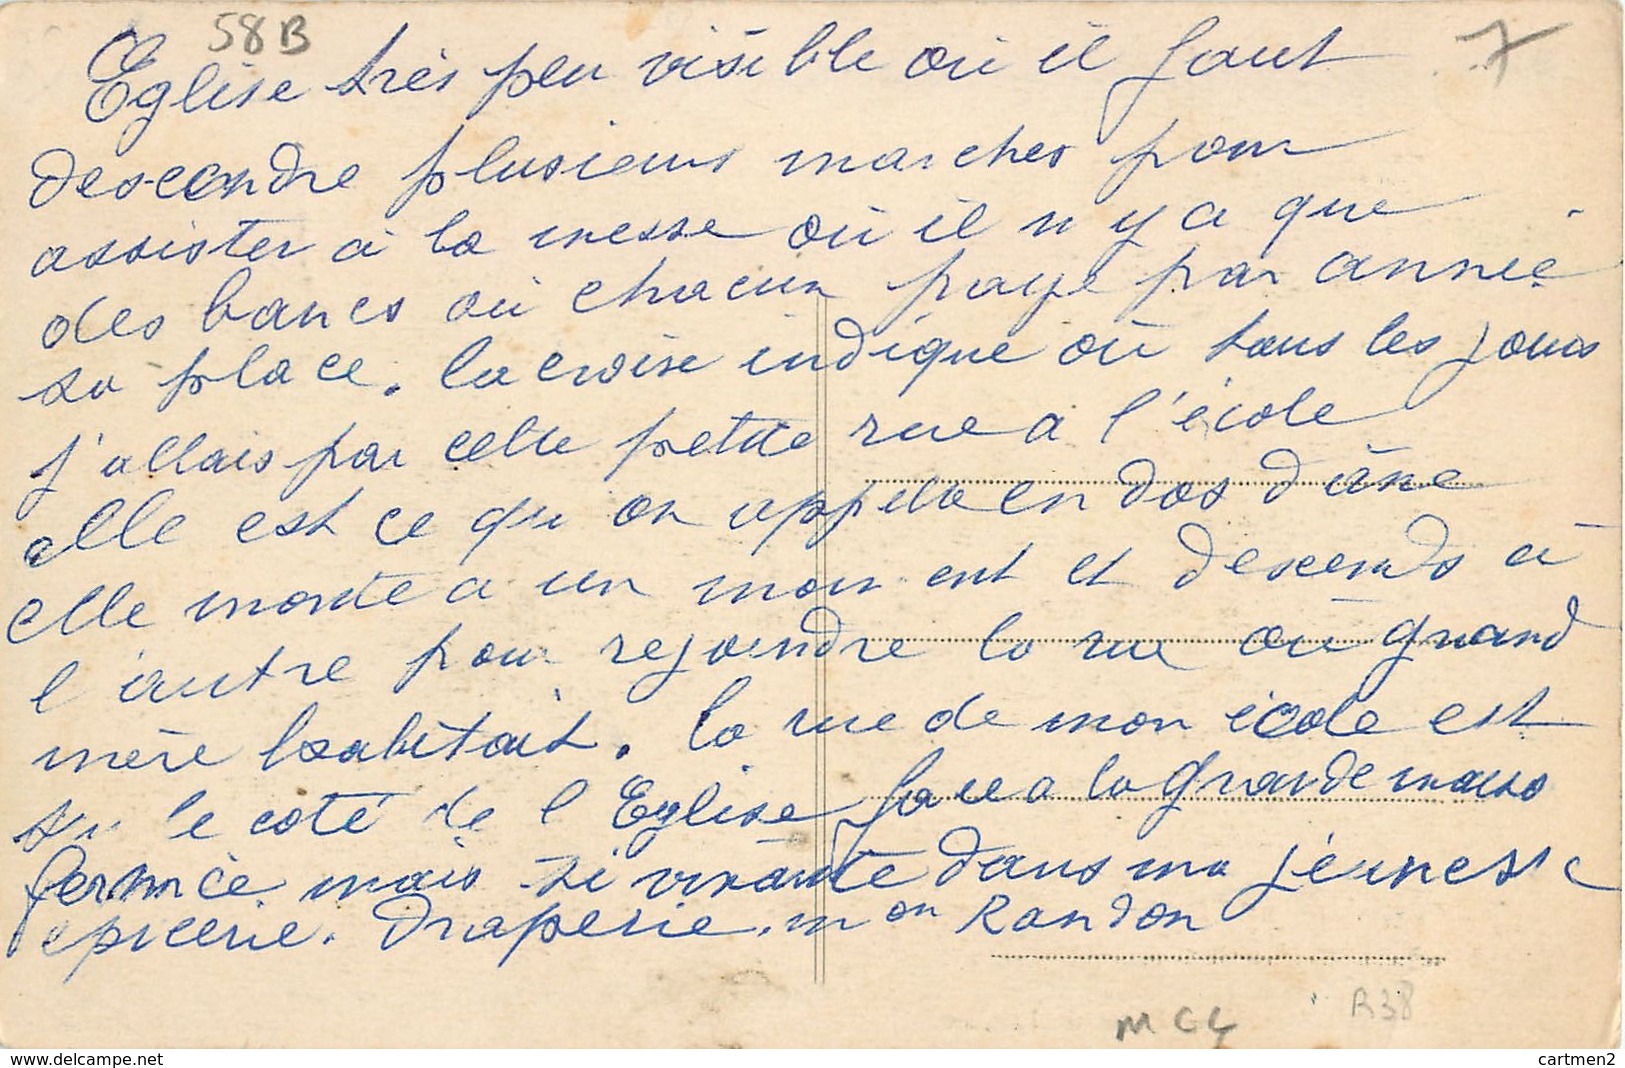 58B
7
Eglise très peu visible où il faut
descendre plusieurs marches pour
assister à la messe où il n y a que
des bancs où chacun paye par année
sa place. la croise indique où tous les jours
j'allais par cette petite rue a l'école
elle est ce qu on appela en dos d'âne
elle monte a un moment et descends à
l'autre pour rejoindre la rue où grand
mère habitait. la rue de mon école est
su le coté de l Eglise face a la grande maiso
fermée mais si vivante dans ma jeunesse
epicerie. Draperie. mon Randon
R38
MCL
delcampe.net
cartmen2